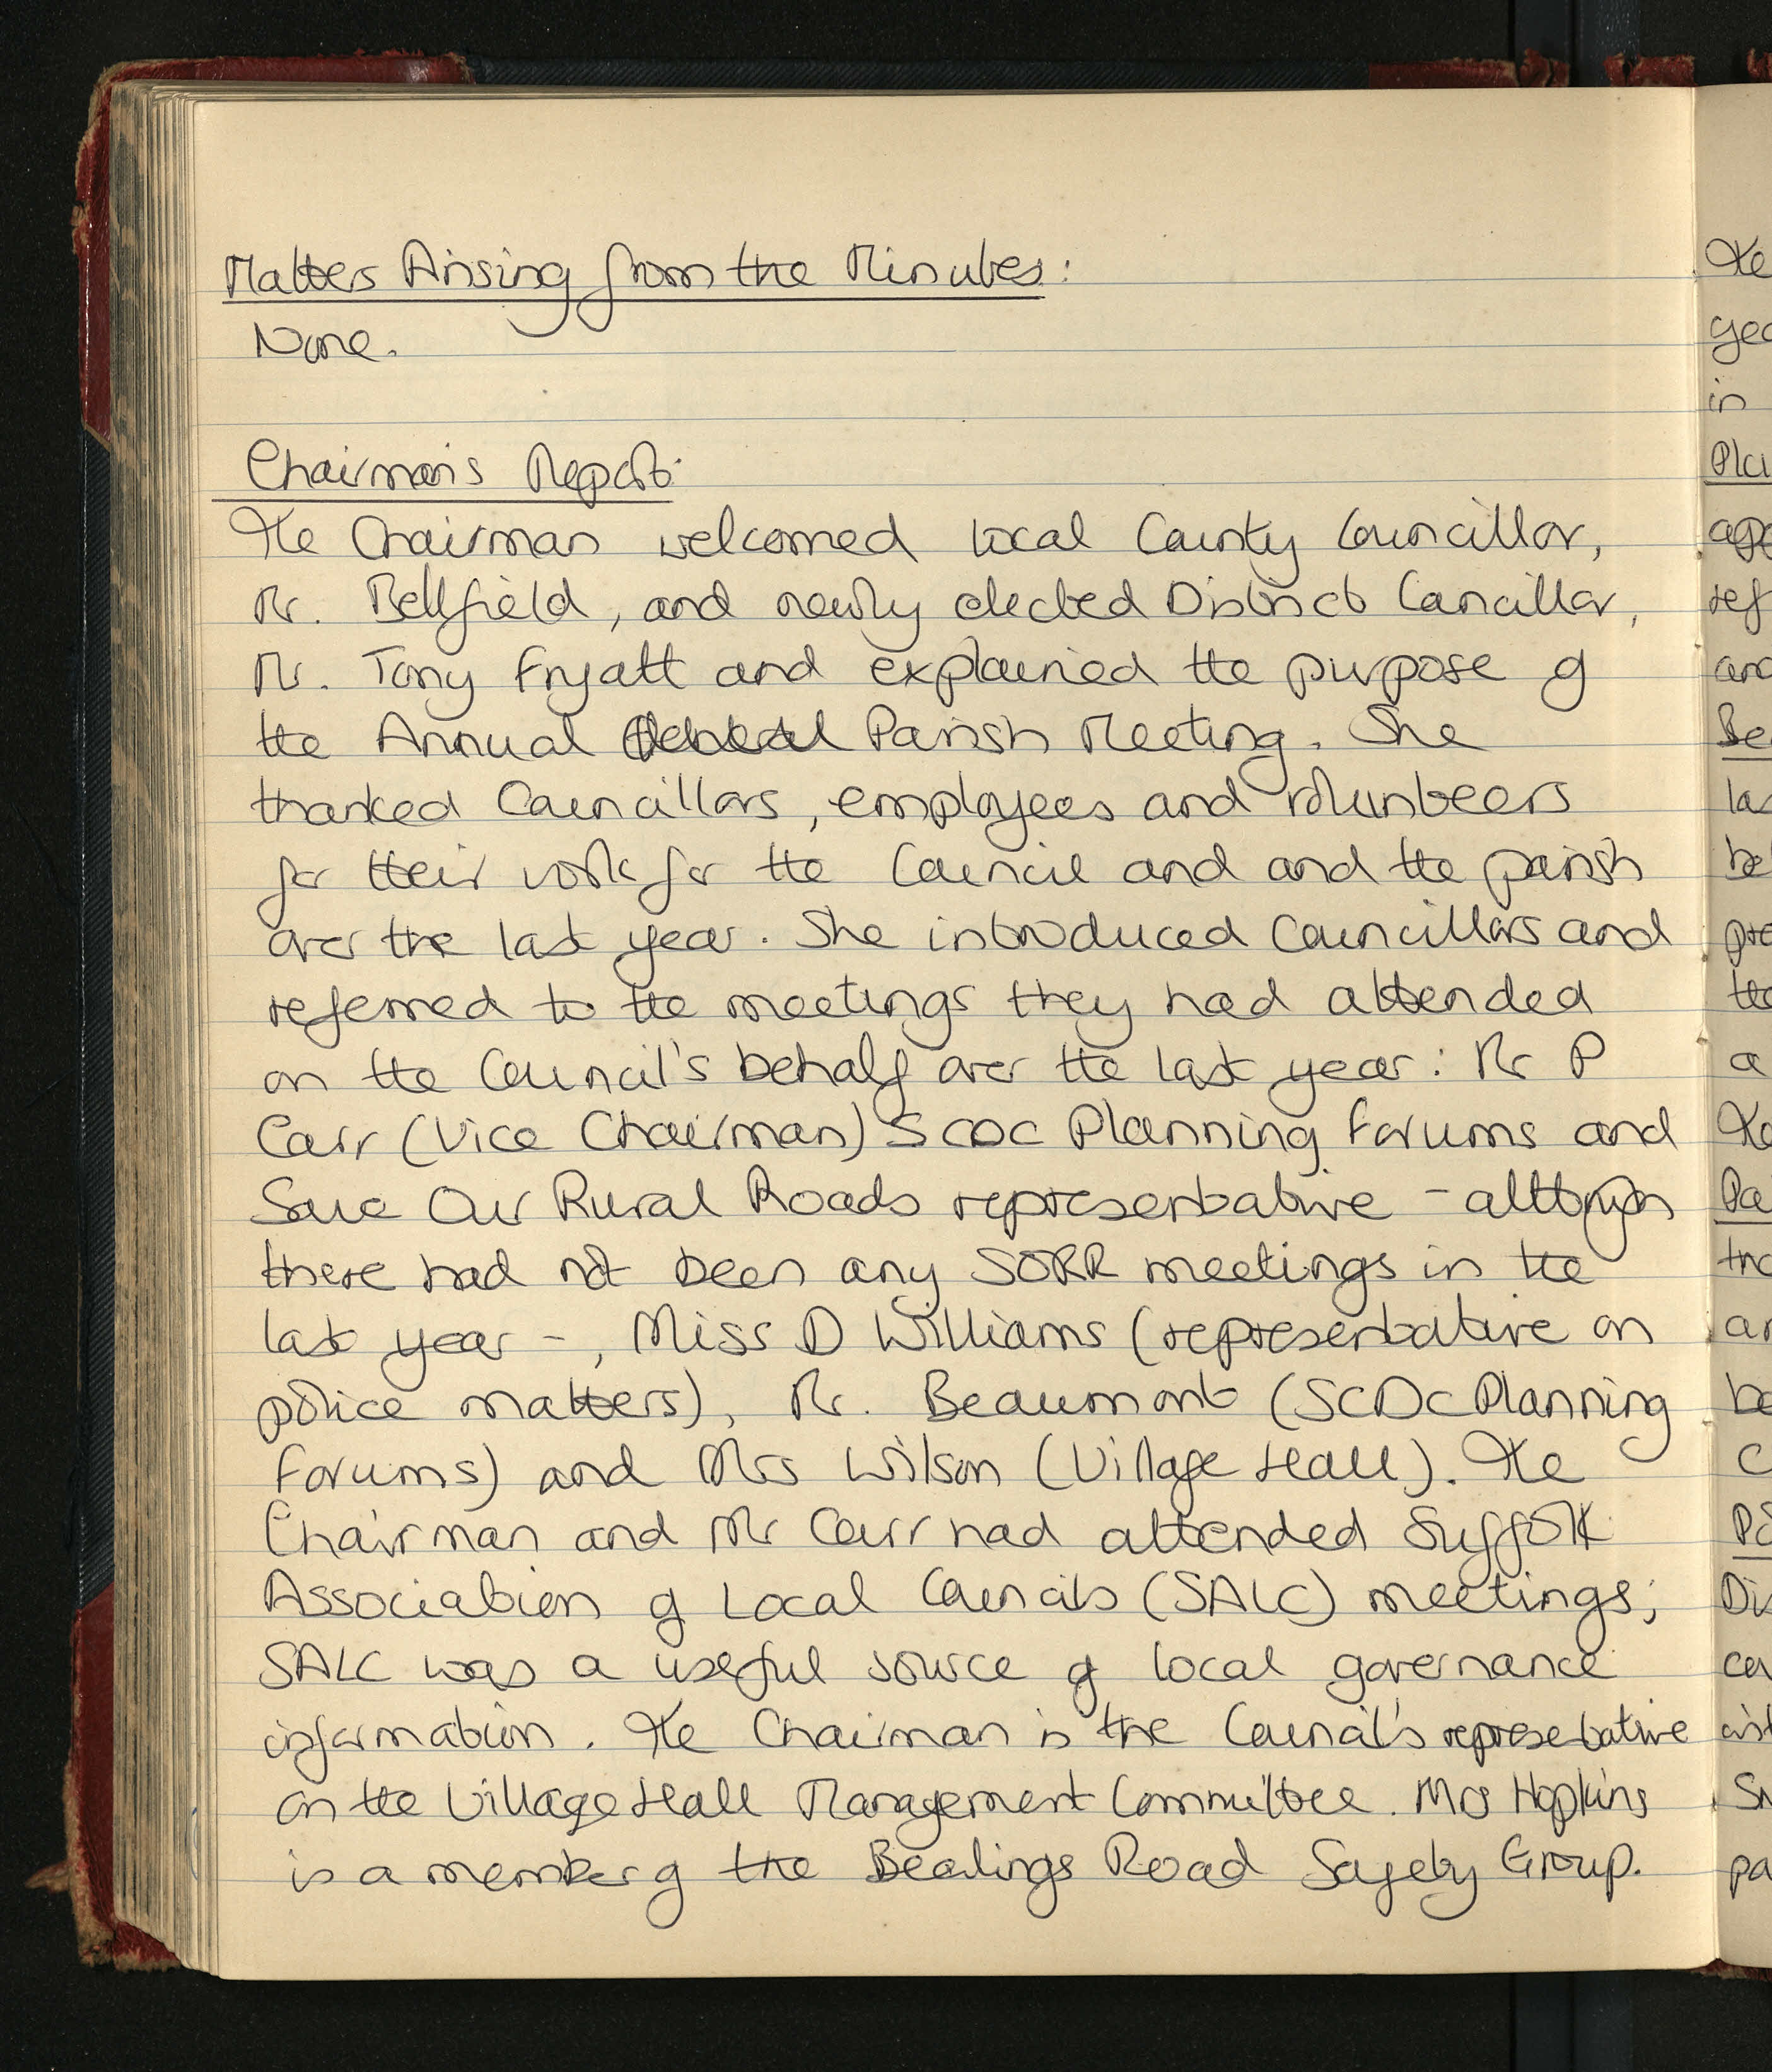 Matters Arising from the Minutes:
None.
Chairman's Report:
The Chairman welcomed local County Councillor,
Mr. Bellfield, and newly elected District Councillor,
Mr. Tony Fryatt and explained the purpose of
the Annual Parish Meeting. She
thanked Councillors, employees and volunteers
for their work for the Council and and the parish
over the last year. She introduced Councillors and
referred to the meetings they had attended
on the Council's behalf over the last year: Mr P
Carr (Vice Chairman) SCDC Planning Forums and
Save Our Rural Roads representative - although
there had not been any SORR meetings in the
last year -, Miss D Williams (representative on
police matters), Mr. Beaumont (SCDC Planning
Forums) and Mrs Wilson (Village Hall). The
Chairman and Mr Carr had attended Suffolk
Association of Local Councils (SALC) meetings;
SALC was a useful source of local governance
information. The Chairman is the Council's represetative
on the Village Hall Management Committee. Mrs Hopkins
is a member of the Bealings Road Safety Group.